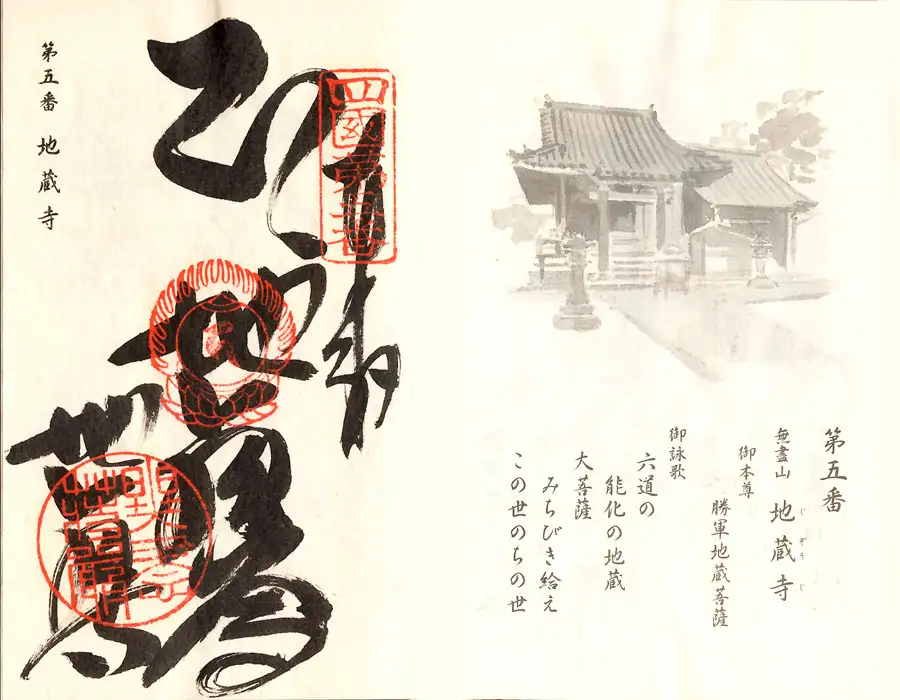 第五番
無盡山 地蔵寺
じぞうじ
御本尊
勝軍地蔵菩薩
御詠歌
六道の
能化の地蔵
大菩薩
みちびき給え
この世のちの世
四國第五番
奉拝
地蔵寺
第五番 地蔵寺